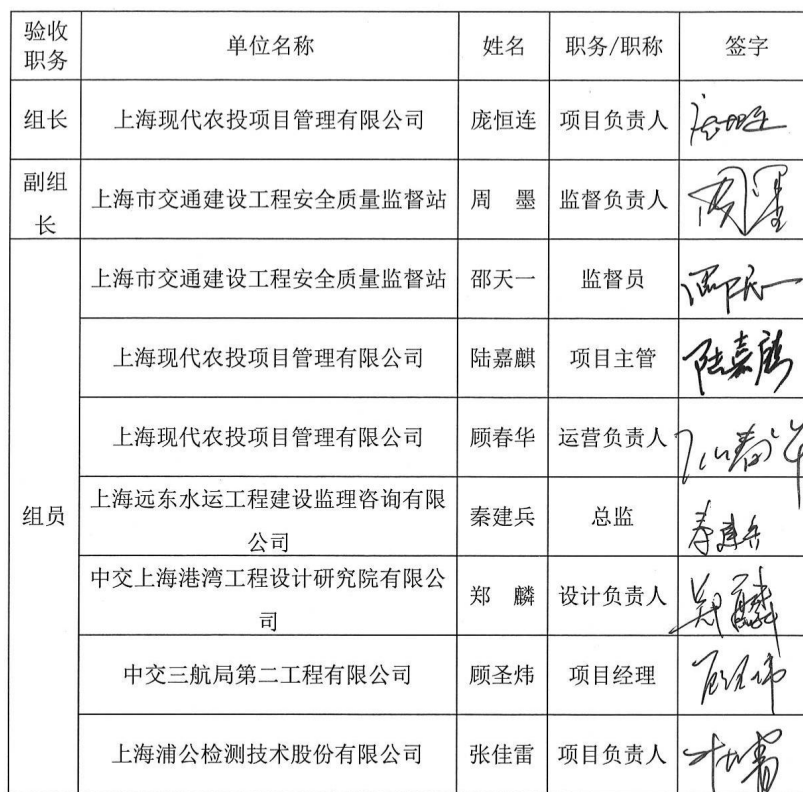 验收职务 单位名称 姓名 职务/职称 签字
组长 上海现代农投项目管理有限公司 庞恒连 项目负责人
副组长 上海市交通建设工程安全质量监督站 周 墨 监督负责人 周墨
组员
上海市交通建设工程安全质量监督站 邵天一 监督员 邵天一
上海现代农投项目管理有限公司 陆嘉麒 项目主管 陆嘉麒
上海现代农投项目管理有限公司 顾春华 运营负责人 顾春华
上海远东水运工程建设监理咨询有限公司 秦建兵 总监 秦建兵
中交上海港湾工程设计研究院有限公司 郑 麟 设计负责人 郑麟
中交三航局第二工程有限公司 顾圣炜 项目经理 顾圣炜
上海浦公检测技术股份有限公司 张佳雷 项目负责人